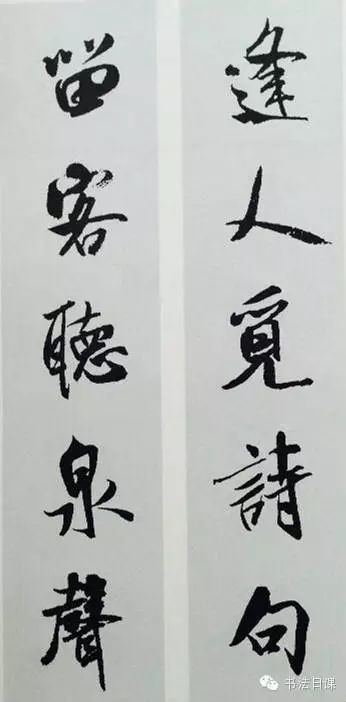 逢人覓詩句
留客聽泉聲
书法日课